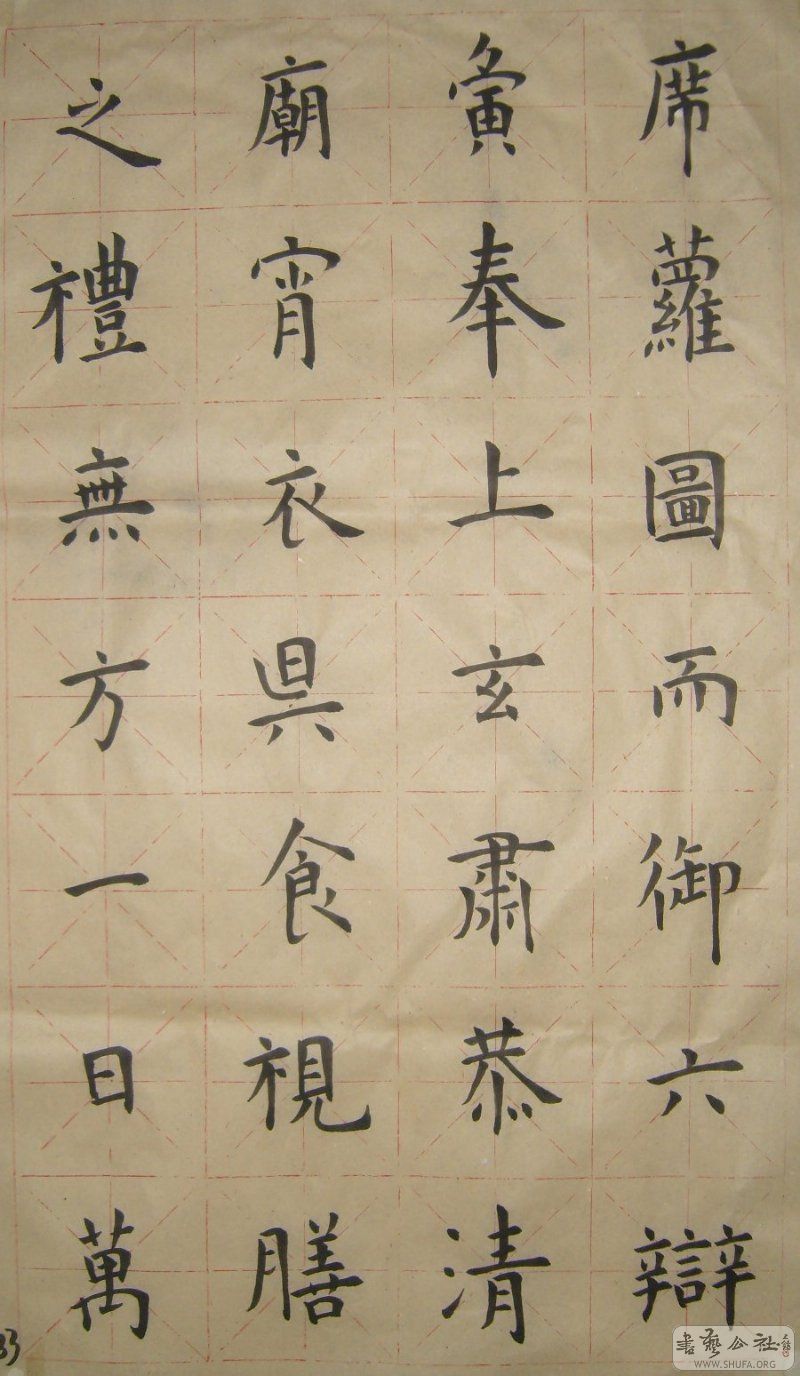 席蘿圖而御六辯
寅奉上玄肅恭清
廟宵衣昃食視膳
之禮無方一日萬
33
書藝公社
WWW.SHUFA.ORG